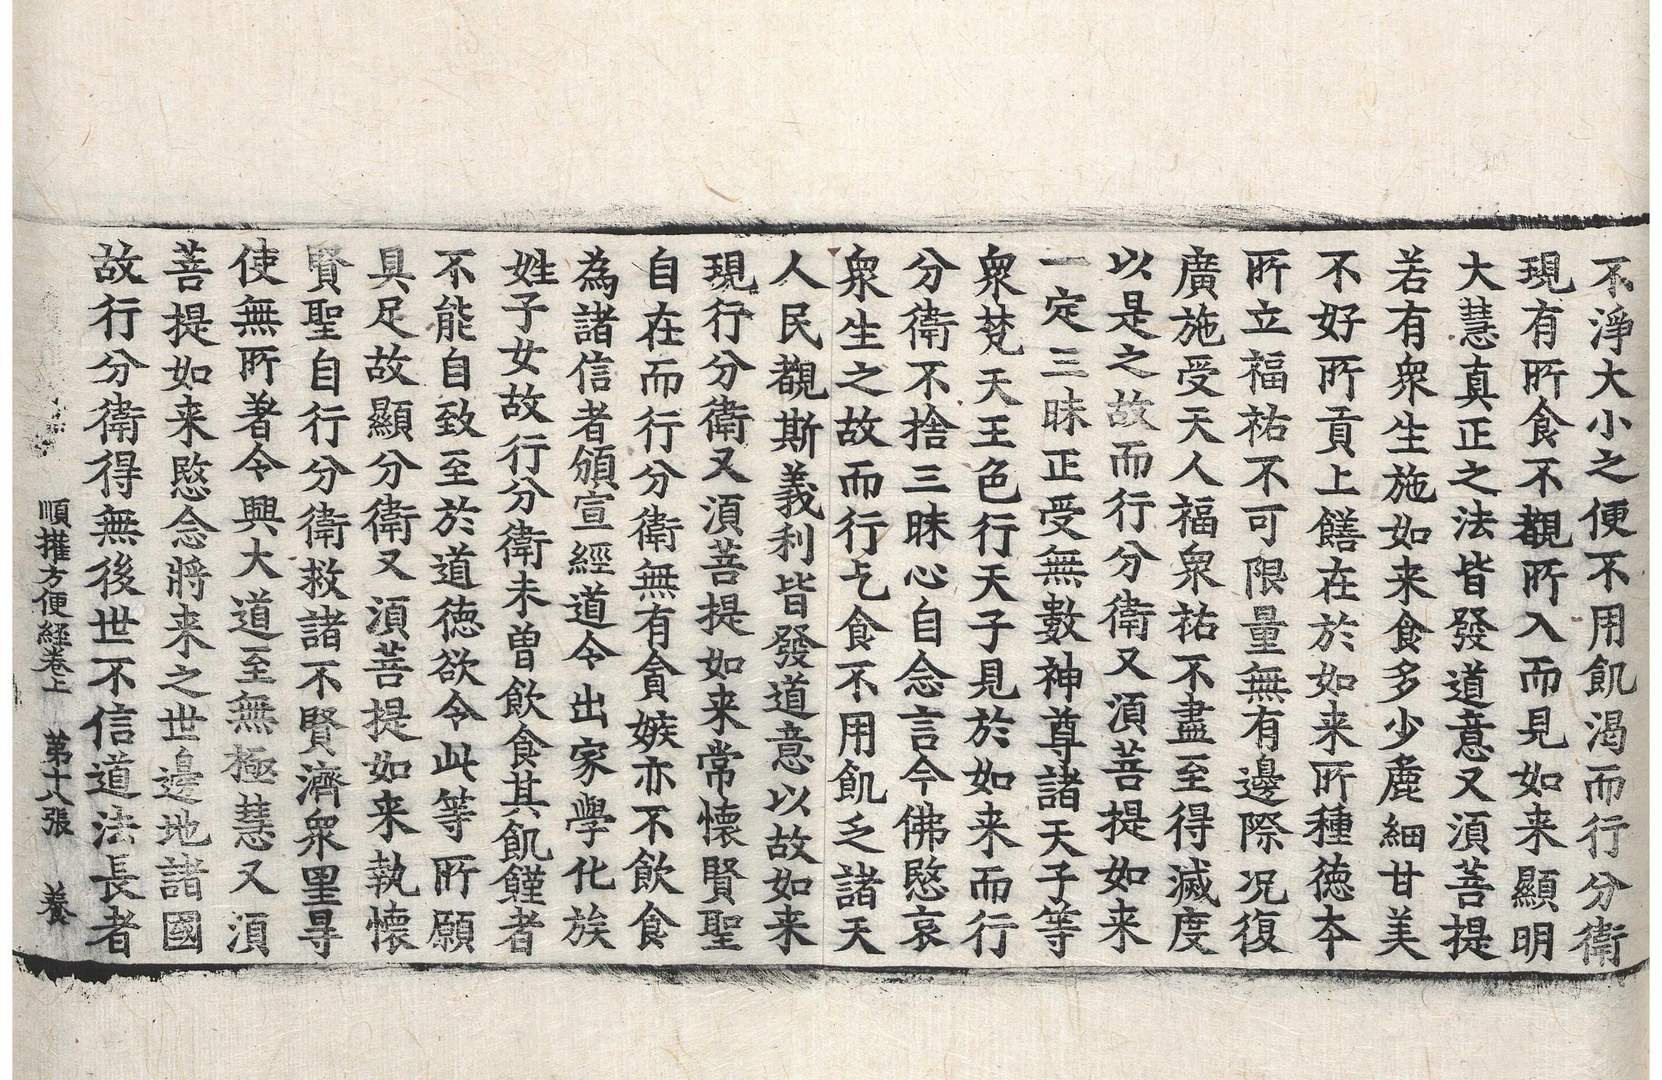 不淨大小之便不用飢渴而行分衛
現有所食不觀所入而見如来顯明
大慧真正之法皆發道意又湏菩提
若有衆生施如来食多少麁細甘美
不好所貢上饍在於如来所種德夲
所立福祐不可限量無有邊際况復
廣施受天人福衆祐不盡至得滅度
以是之故而行分衛又湏菩提如来
一定三昧正受無數神尊諸天子等
衆梵天王色行天子見於如来而行
分衛不捨三昧心自念言今佛愍哀
衆生之故而行乞食不用飢乏諸天
人民觀斯義利皆發道意以故如来
現行分衛又湏菩提如来常懷賢聖
自在而行分衛無有貪嫉亦不飲食
為諸信者頒宣經道令出家學化族
姓子女故行分衛未曽飲食其飢饉者
不能自致至於道德欲令此等所願
具足故顯分衛又湏菩提如来執懷
賢聖自行分衛救諸不賢濟衆罣㝵
使無所著令興大道至無極慧又湏
菩提如来愍念將来之世邊地諸國
故行分衛得無後世不信道法長者
順權方便經卷上 第十八張 養